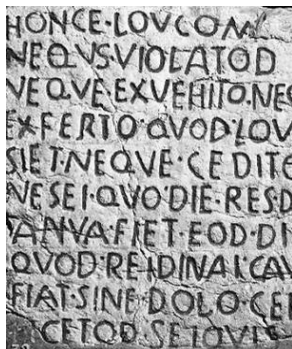 HONCE·LOVCOM
NEQVS·VIOLATOD
NEQVE·EXVEHITO·NE
EXFERTO·QVOD·LOV
SIET·NEQVE·CEDITO
NESEI·QVO·DIE·RES·D
ANVA·FIET·EOD·DI
QVOD·REI·DINAI·CAV
FIAT·SINE·DOLO·CED
CETOD·SEIQVIS